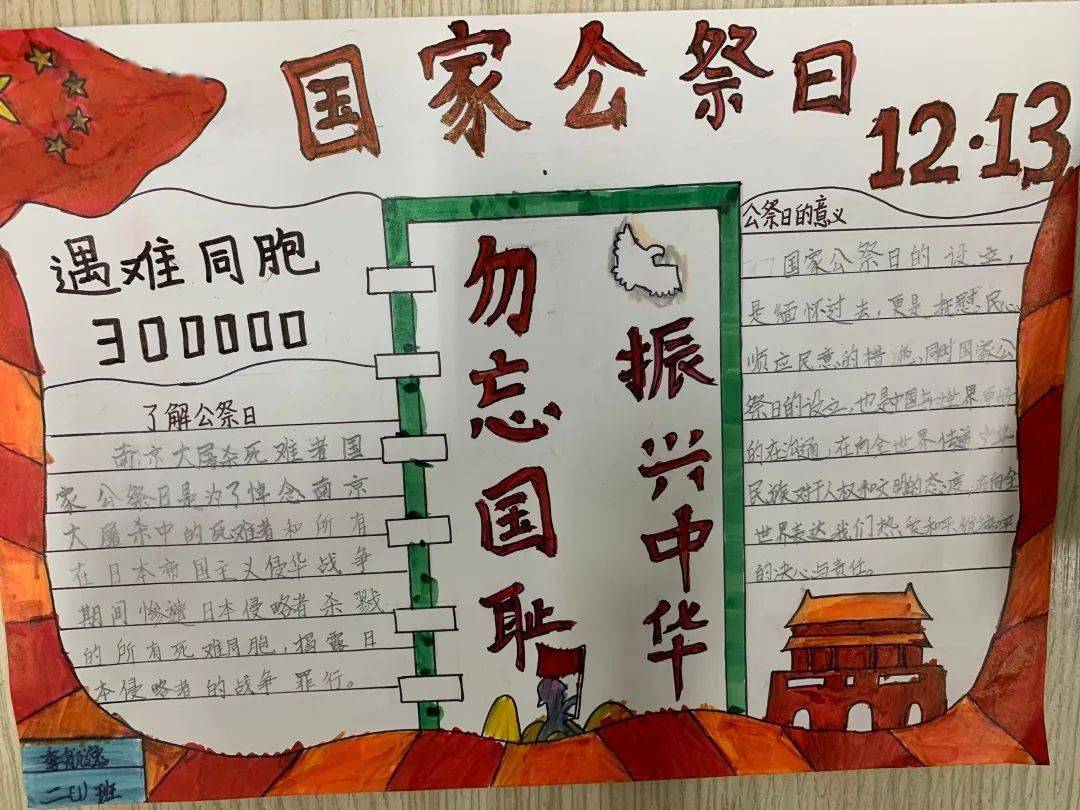 国家公祭日
12·13
遇难同胞
300000
了解公祭日
南京大屠杀死难者国
家公祭日是为了悼念南京
大屠杀中的死难者和所有
在日本帝国主义侵华战争
期间惨遭日本侵略者杀戮
的所有死难同胞，揭露日
本侵略者的战争罪行。
勿忘国耻
振兴中华
公祭日的意义
国家公祭日的设立，
是缅怀过去，更是抚慰民心
顺应民意的措施，同时国家公
祭日的设立，也是中国与世界
的在沟通，在向全世界传递中华
民族对于人权和文明的态度，在向全
世界表达我们热爱和平维护和平
的决心与责任。
李航逸
二(1)班